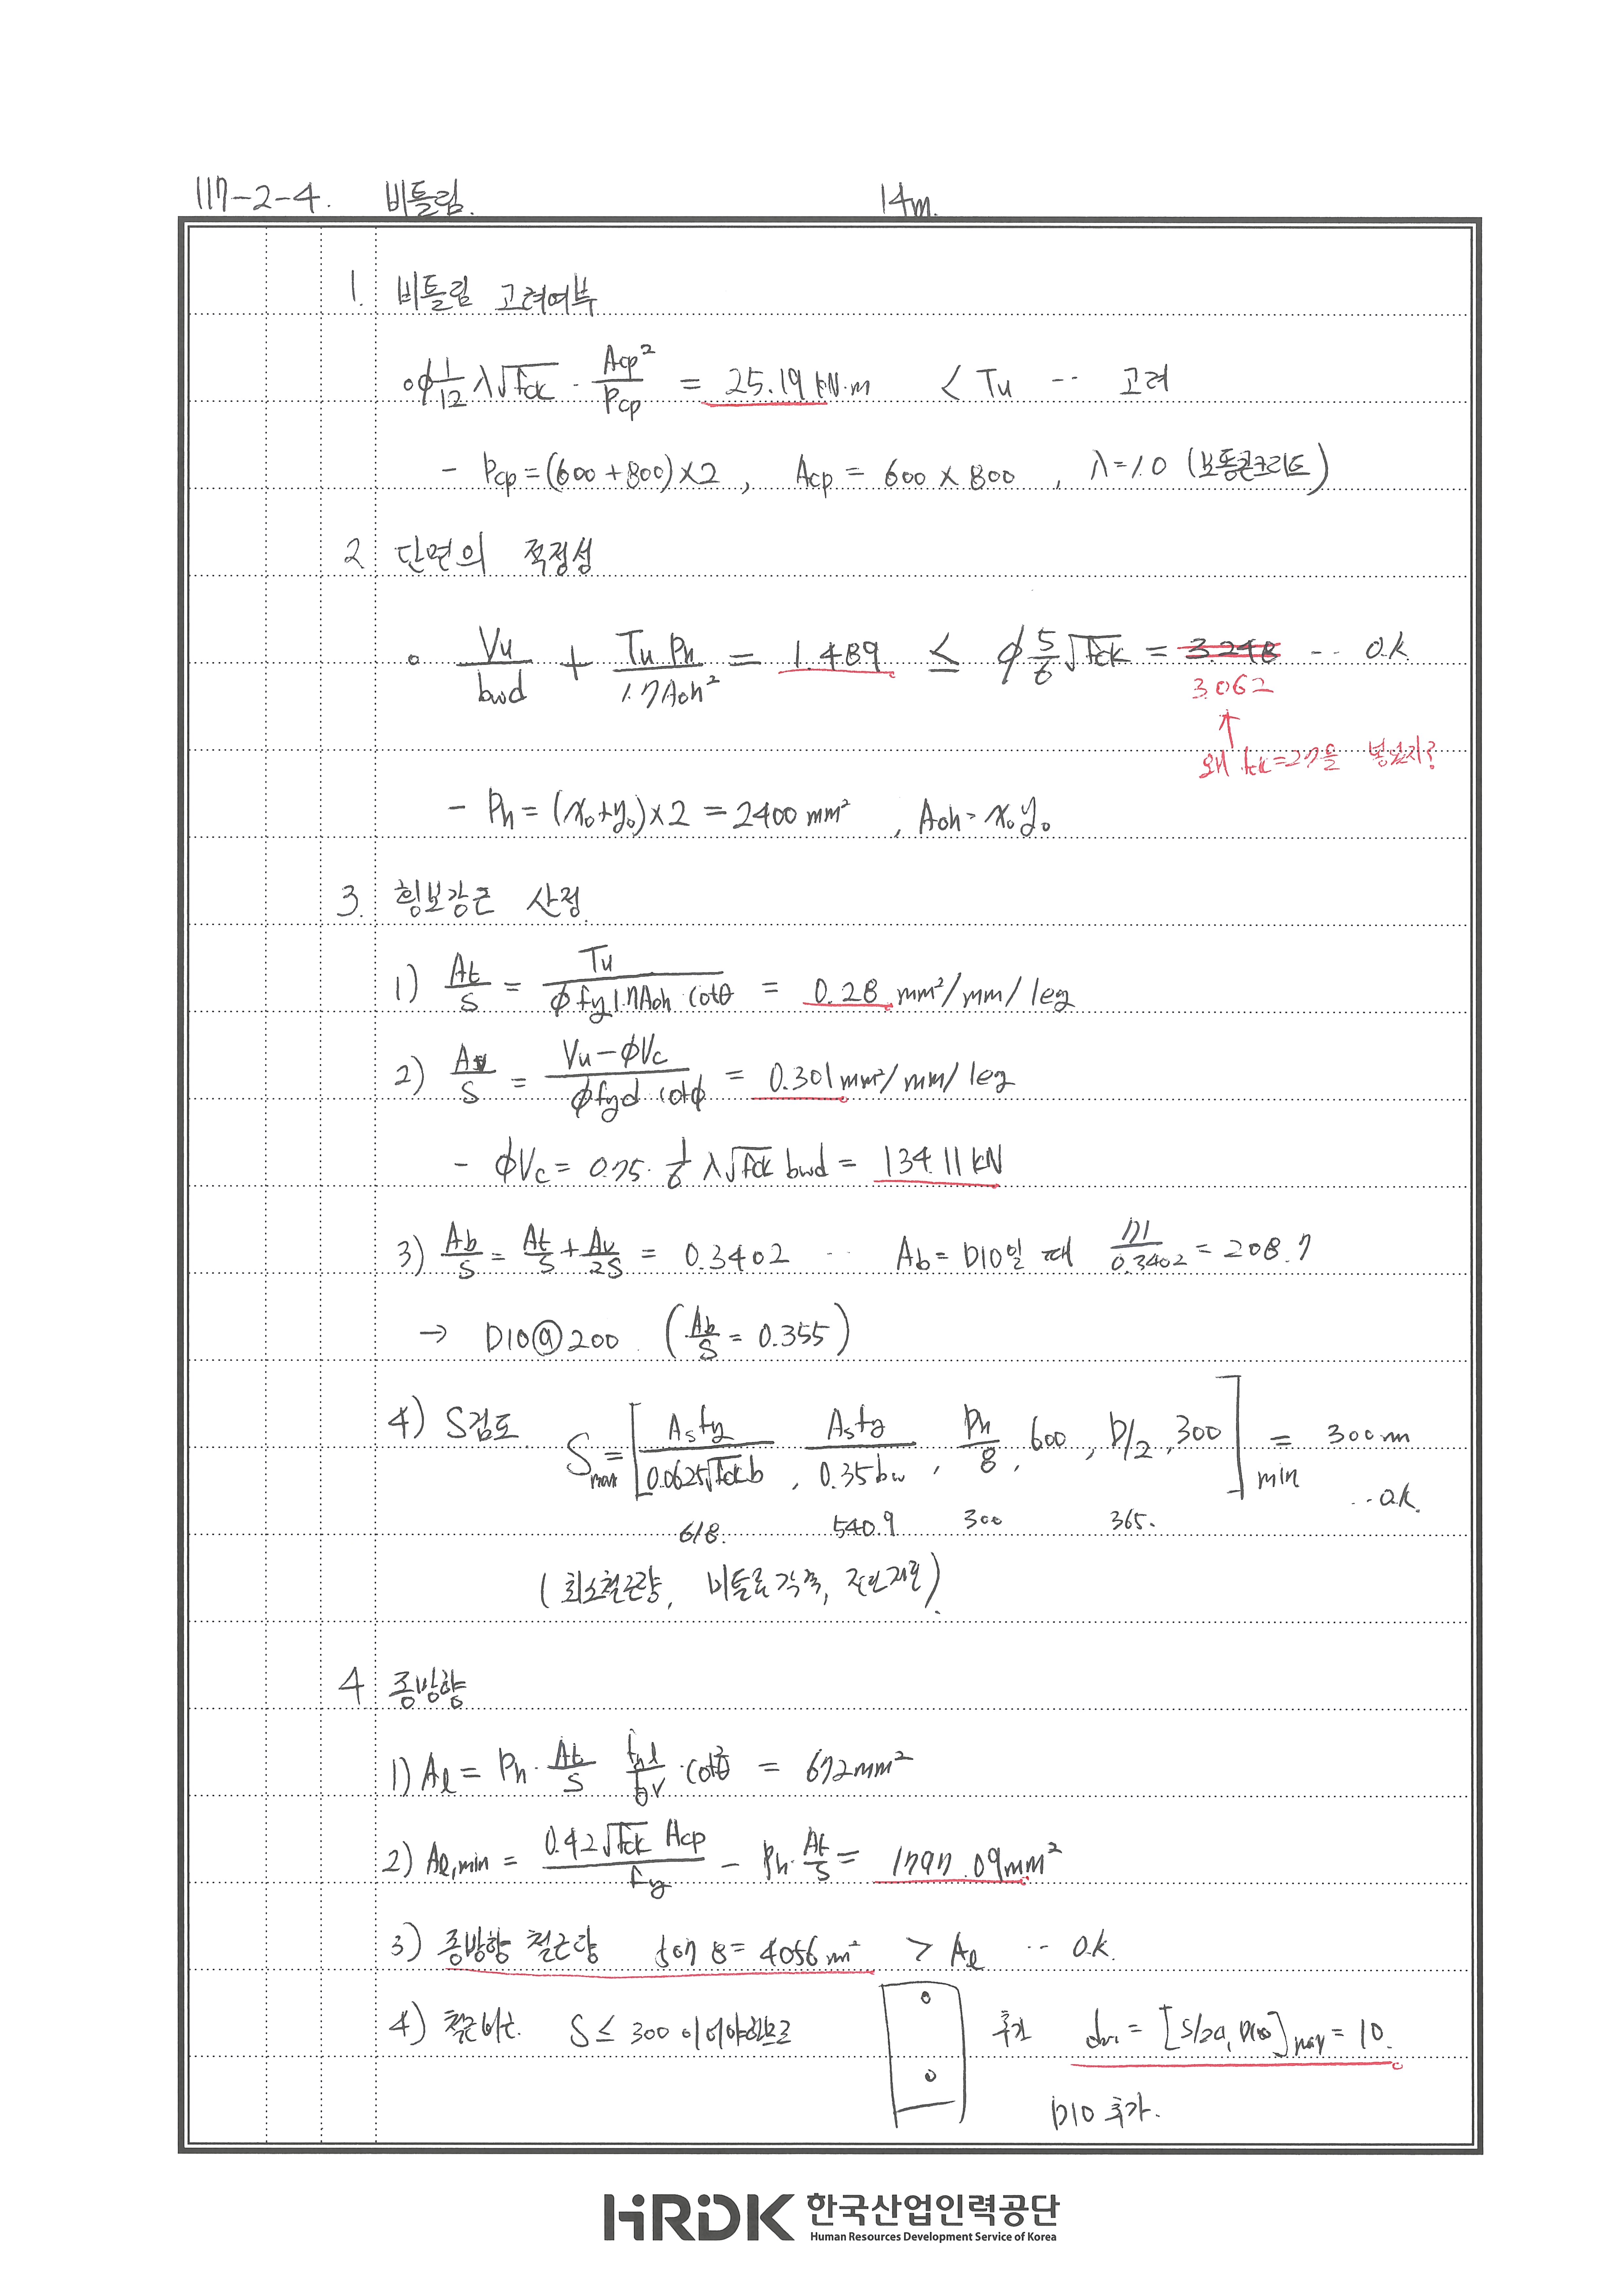 117-2-4. 비틀림. 14m.
1. 비틀림 고려여부
∘ϕ 1/12 λ√fck · Acp²/Pcp = 25.19 kN·m < Tu -- 고려
- Pcp = (600+800)×2, Acp = 600×800, λ=1.0 (보통콘크리트)
2 단면의 적정성
∘ Vu/bwd + Tu Ph/1.7Aoh² = 1.489 ≤ ϕ 5/6 √fck = 3.248 -- O.K
3.062
↑
왜 fck=27을 넣었지?
- Ph = (x₀+y₀)×2 = 2400 mm², Aoh = x₀y₀
3. 횡보강근 산정
1) At/S = Tu/ϕfy1.7Aoh cotθ = 0.28 mm²/mm/leg
2) Av/S = Vu-ϕVc/ϕfyd cotϕ = 0.301 mm²/mm/leg
- ϕVc = 0.75 · 1/6 λ√fck bwd = 134.11 kN
3) Ab/S = At/S + Av/2S = 0.3402 -- Ab = D10일 때 71/0.3402 = 208.7
→ D10@200. (Ab/S = 0.355)
4) S검토 Smax = [Asfy/0.0625√fck b, Asfy/0.35bw, Ph/8, 600, D/2, 300]min = 300m
--O.K.
618. 540.9 300 365.
(최소철근량, 비틀림간격, 전단간격).
4 종방향
1) Aℓ = Ph · At/S fyl/fyv · cot²θ = 672mm²
2) Aℓ,min = 0.42√fck Acp/fy - Ph · At/S = 1797.09mm²
3) 종방향 철근량 507 8 = 4056 m² > Aℓ -- O.K.
4) 철근배근. S ≤ 300 이어야하므로 추가 = [S/24, D10]max = 10.
D10 추가.
HRDK 한국산업인력공단
Human Resources Development Service of Korea